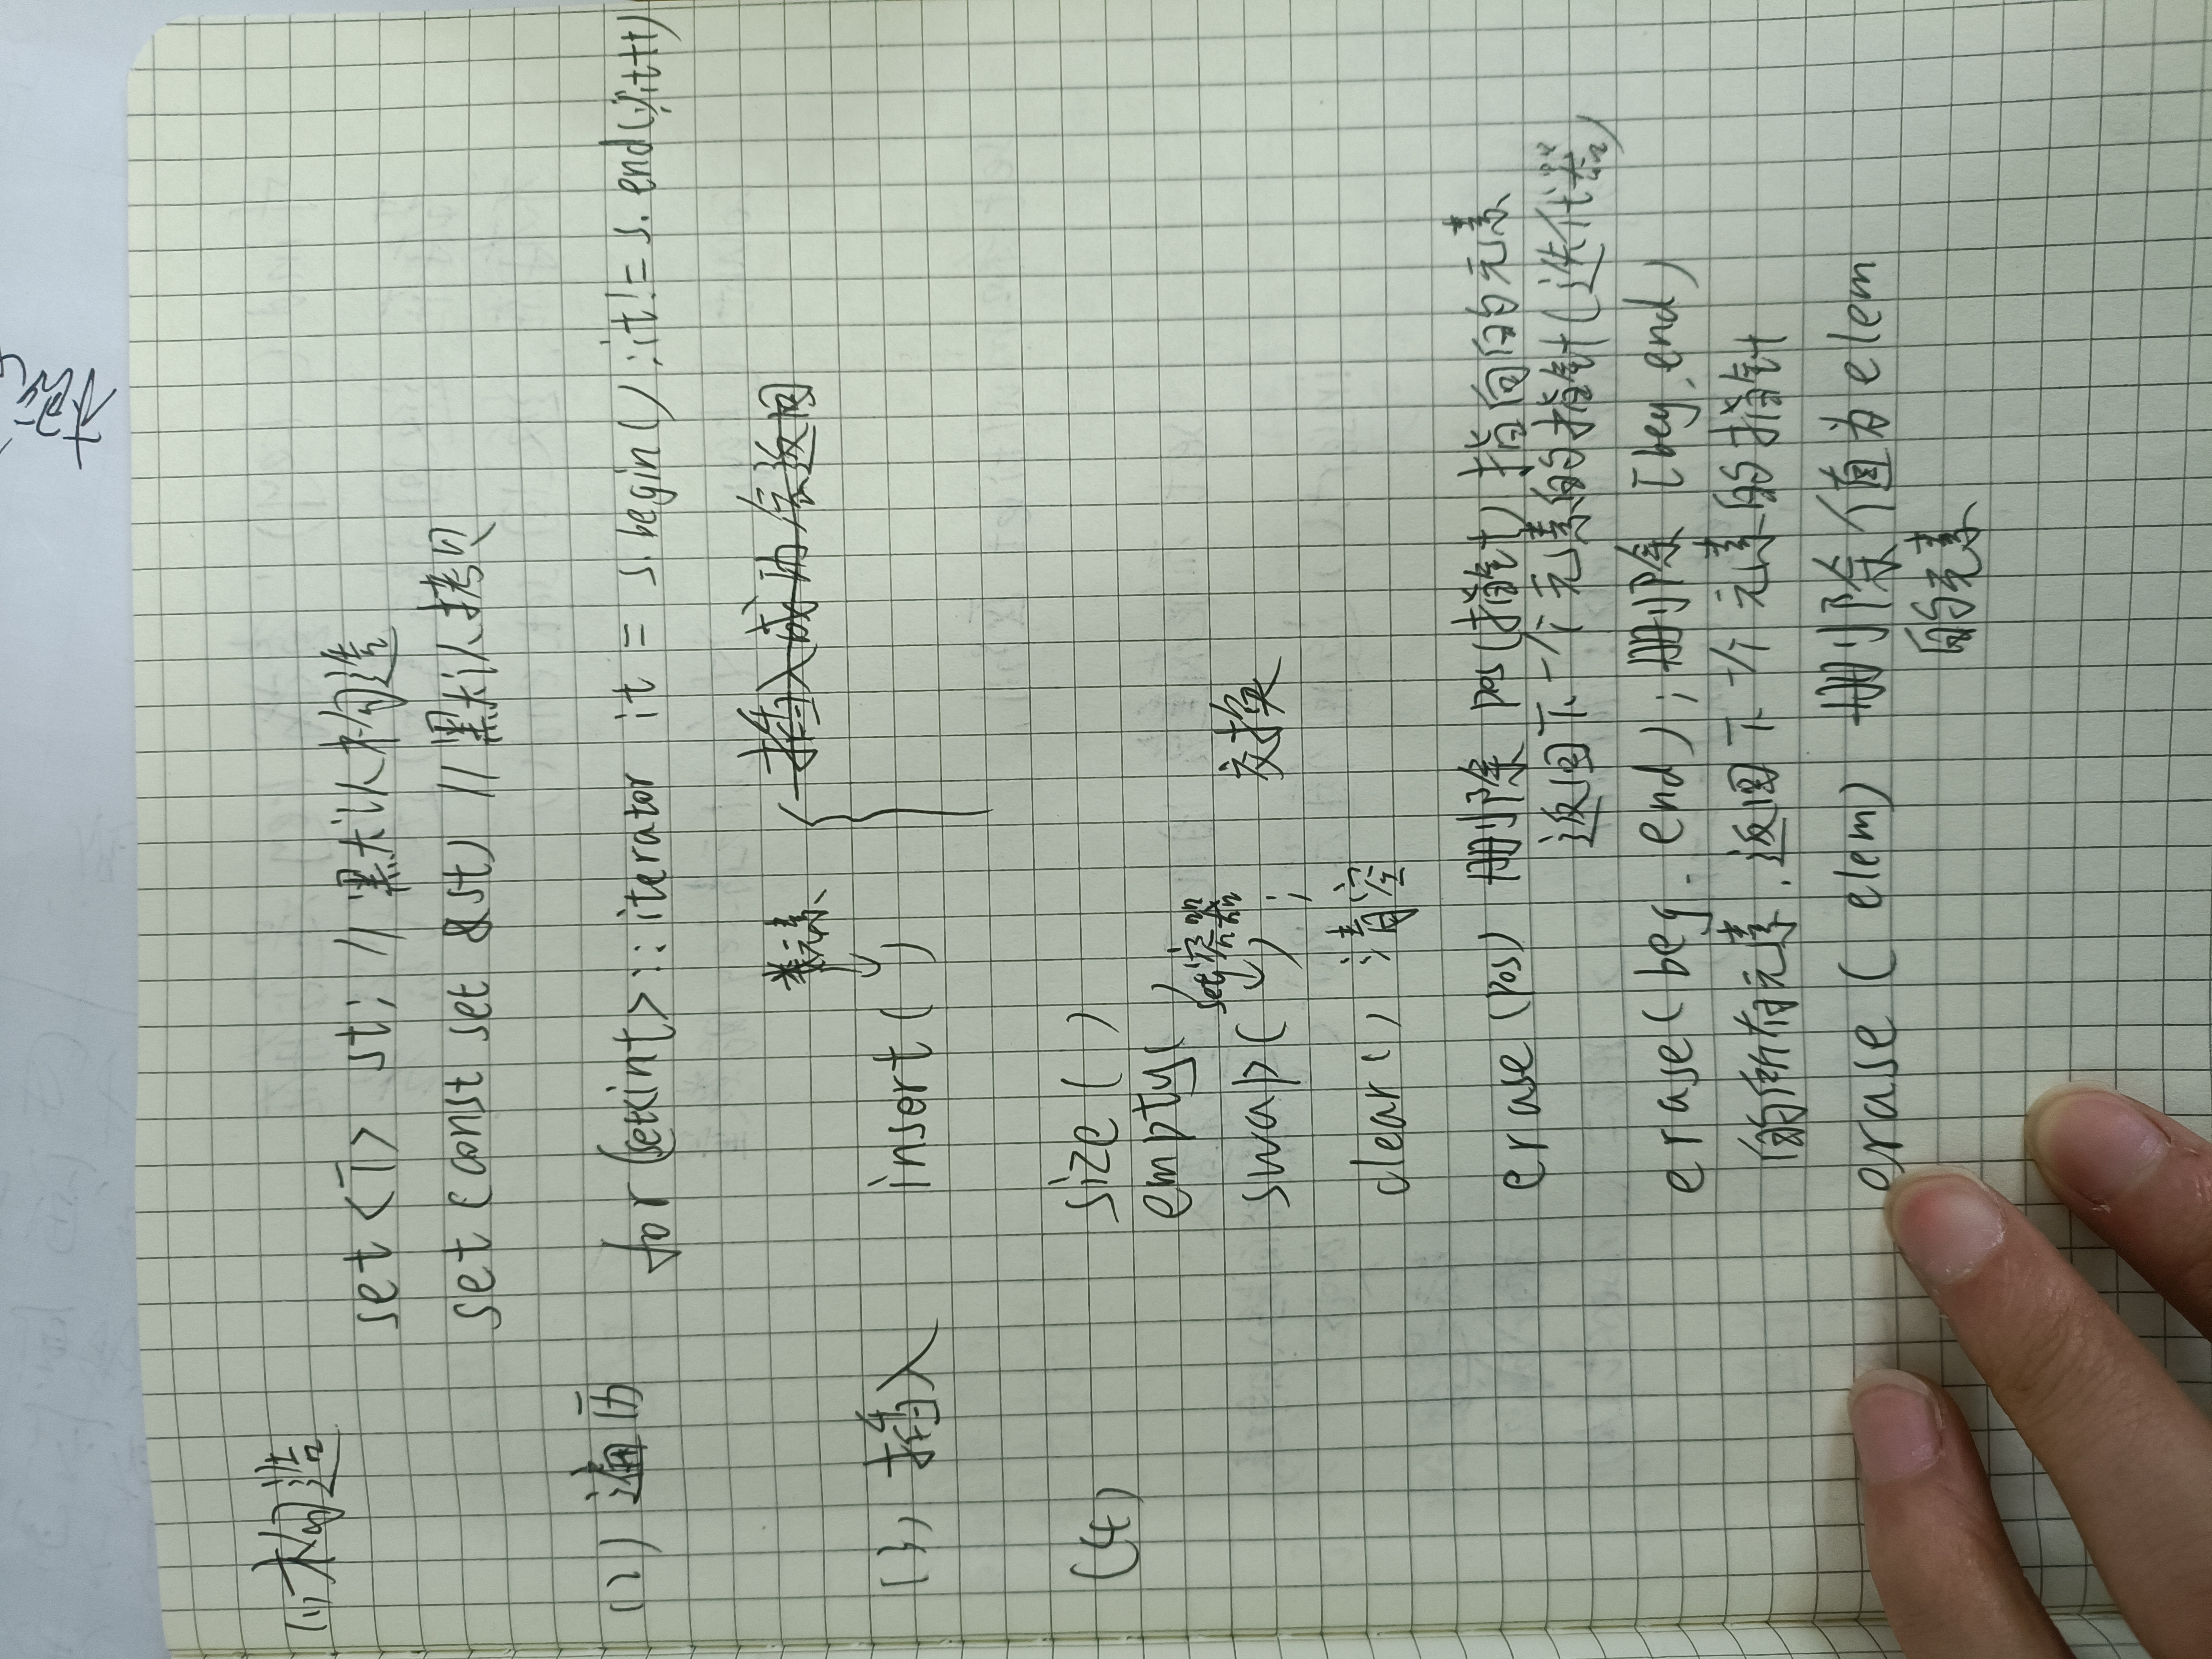 (1) 构造
set<T> st; //默认构造
set(const set &st) //默认拷贝
(2) 遍历 for(set<int>::iterator it = s.begin();it!=s.end();it++)
元素
插入成功会返回
(3) 插入 insert( )
(4) size( )
empty( )
set容器
swap( ); 交换
clear() 清空
erase(pos) 删除 pos(指针) 指向的元素
返回下一个元素的指针(迭代器)
erase(beg. end); 删除 [beg, end)
的所有元素. 返回下一个元素的指针
erase( elem) 删除值为elem
的元素